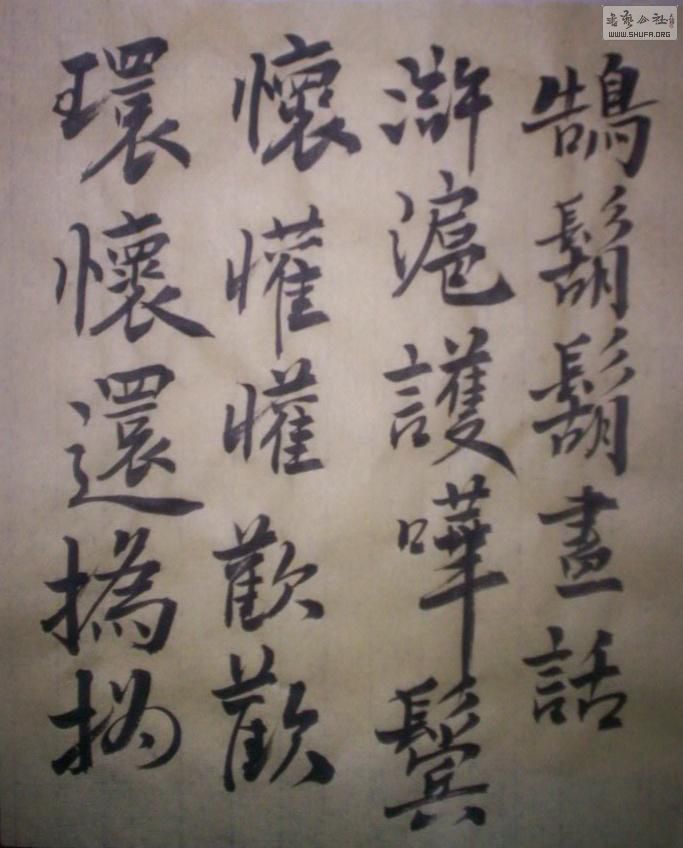 鵠鬍鬍畫話
滸滬護嘩鬢
懷懽懽歡歡
環懷還撝撝
書藝公社
WWW.SHUFA.ORG